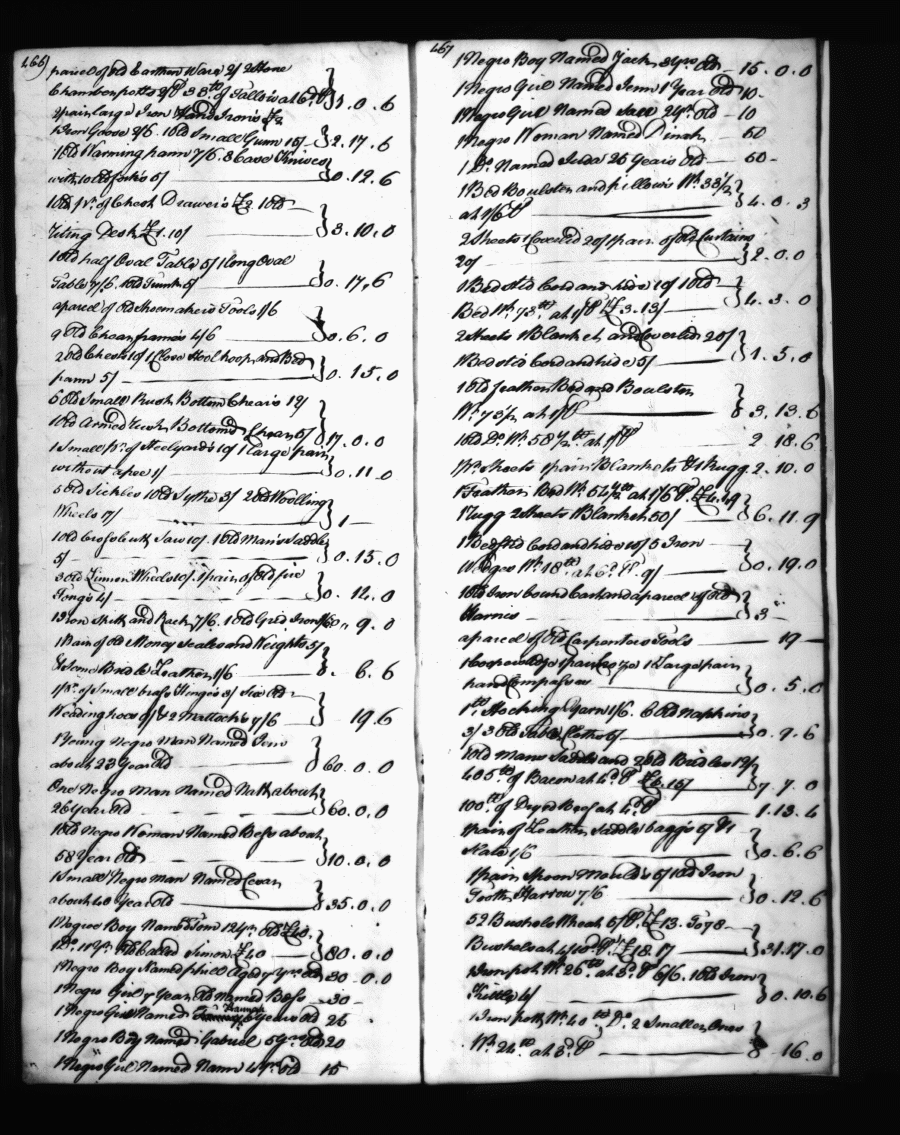 166)
parcel of old Earthen Ware 2/ 2 Stone
Chamber potts 2/ 33 lb of Tallow at 6d } 1.0.6
2 pair large Iron Hand Irons £2
1 Iron Goose 2/6. 1 Old Small Gunn 15/ } 2.17.6
1 Old Warming pann 7/6. 8 Case Knives
with 10 Old forks 5/ } 0.12.6
1 Old pr. of Chest Drawers £2. 1 Old
Writing Desk £1.10/ } 3.10.0
1 Old half Oval Table 5/ 1 long Oval
Table 7/6. 1 Old Trunk 5/ } 0.17.6
a parcel of Old Shoemakers Tools 1/6
9 Old Chear frames 4/6 } 0.6.0
2 Old Chests 10/ 1 Close Stool hoop and Bed
pann 5/ } 0.15.0
6 Old Small Rush Bottom Chears 12/
1 Old Armed Rush Bottomd Chear 5/ } 17.0.0
1 Small pr. of Steelyards 10/ 1 large pair
without a pee 1/ } 0.11.0
5 Old Sickles 1 Old Sythe 3/ 2 Old Woolling
Wheels 17/ } 1
1 Old Crosscutt Saw 10/. 1 Old Man's Saddle
5/ } 0.15.0
3 Old Linnen Wheels 10/. 1 pair of Old fire
Tongs 2/ } 0.12.0
1 Iron Spitt and Rack 7/6. 1 Old Grid Iron 1/6 0.9.0
1 Pair of old Money Scales and Weights 5/
& Some Bridle Leather 1/6 } 0.6.6
1 pr. of Small brass Hinges 3/ Six Old
Weading hoes 9/ & 2 Mattocks 7/6 } 19.6
1 Young Negro Man Named Jem
about 23 Year Old } 60.0.0
One Negro Man Named Natt about
26 Year Old } 60.0.0
1 Old Negro Woman Named Bess about
58 Year Old } 10.0.0
1 Small Negro Man Named Cesar
about 40 Year Old } 35.0.0
1 Negroe Boy Named Tom 12 yr. Old £40.
1 Do. 11 Yr. Old Called Simon £40 } 80.0.0
1 Negro Boy Named phill Aged 7 Yrs. Old 30-0.0
1 Negro Girl 7 Year Old Named Bess 30
1 Negro Girl Named Hannah 6 Years Old 26
1 Negro Boy Named Gabriel 5 Yr. Old 20
1 Negro Girl Named Nann 4 Yr. Old 15
167
1 Negro Boy Named Jack 3 Yrs. Old 15.0.0
1 Negro Girl Named Jenn 1 Year Old 10.
1 Negro Girl Named Sall 2 Yr. Old 10
1 Negro Woman Named Dinah 50
1 Do. Named Juda 26 Years Old 60
1 Bed Boulster and pillows Wt. 38 1/2
at 1/6 } 4.0.3
2 Sheets 1 Coverlid 20/ 1 pair of Old Curtains
20/ } 2.0.0
1 Bedsted Cord and hide 10/ 1 Old
Bed Wt. 73 lb at 1/ £3.13/ } 4.3.0
2 Sheets 1 Blanket and Coverlid 20/
1 Bedsted Cord and hide 5/ } 1.5.0
1 Old feather Bed and Boulster
Wt. 73 1/2 at 1/ } 3.13.6
1 Old Do. Wt. 58 1/2 lb at 1/ 2 18.6
pr. Sheets 1 pair Blankets & 1 Rugg 2.10.0
1 Feather Bed Wt. 54 1/2 lb at 1/6 £4.1.9
1 Rugg 2 Sheets 1 Blanket 50/ } 6.11.9
1 Bedsted Cord and hide 10/ 5 Iron
Wedges Wt. 18 lb at 6d 9/ } 0.19.0
1 Old Iron bound Cart and a parcel of Old
Harnis } 3
a parcel of Old Carpenters Tools 19
1 Coopers adze 1 pair 1 Large pair
hand Compasses } 0.5.0
1 lb. Stocking Yarn 1/6. 6 Old Napkins
3/ 3 Old Table Cloths 5/ } 0.9.6
1 Old Mans Saddle and 2 Old Bridles 12/
405 lb of Bacon at 4d £6.15/ } 7.7.0
100 lb of Dryed Beef at 4d 1.13.4
1 pair of Leather Saddle baggs 5/ & 1
Slate 1/6 } 0.6.6
1 pair Spoon Moulds 5/ 1 Old Iron
Tooth Harrow 7/6 } 0.12.6
52 Bushels Wheat 5/ £13. To 78
Bushels at 4/10 £18.17 } 31.17.0
1 Iron pot Wt. 26 lb at 3d 6/6. 1 Old Iron
Kittle 4/ } 0.10.6
1 Iron pott Wt. 40 lb Do. 2 Smaller Ones
Wt. 24 lb at 3d } 16.0